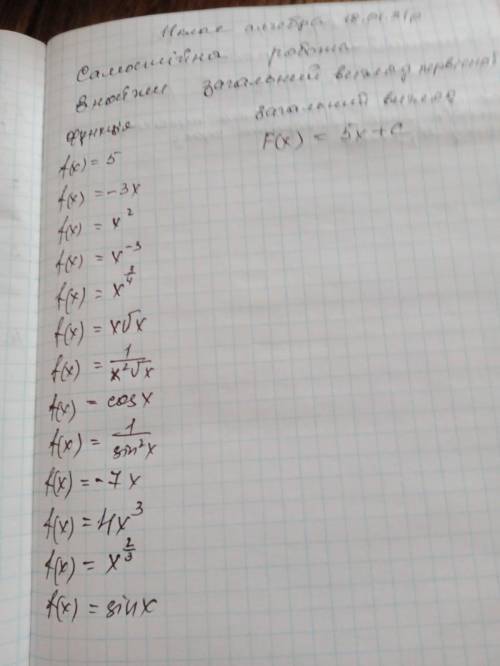 алгебра
Самостійна робота
Знайти загальний вигляд первісної
функція
загальний вигляд
F(x) = 5x+C
f(x) = 5
f(x) = -3x
f(x) = x²
f(x) = x⁻³
f(x) = x^(3/4)
f(x) = x√x
f(x) = 1/(x²√x)
f(x) = cosx
f(x) = 1/(sin²x)
f(x) = -7x
f(x) = 4x³
f(x) = x^(2/3)
f(x) = sinx